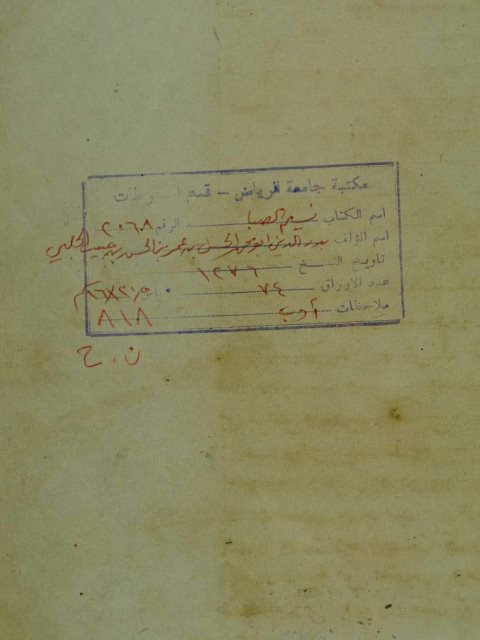 مكتبة جامعة الرياض - قسم المخطوطات
اسم الكتاب نسيم الصبا الرقم ٢٠٦٨
اسم المؤلف بدر الدين ابو محمد الحسن بن عمر بن الحسن بن حبيب الحلبي
تاريخ النسخ ١٢٧٦
عدد الاوراق ٧٤
ملاحظات أدب ٨١٨
ن . ح